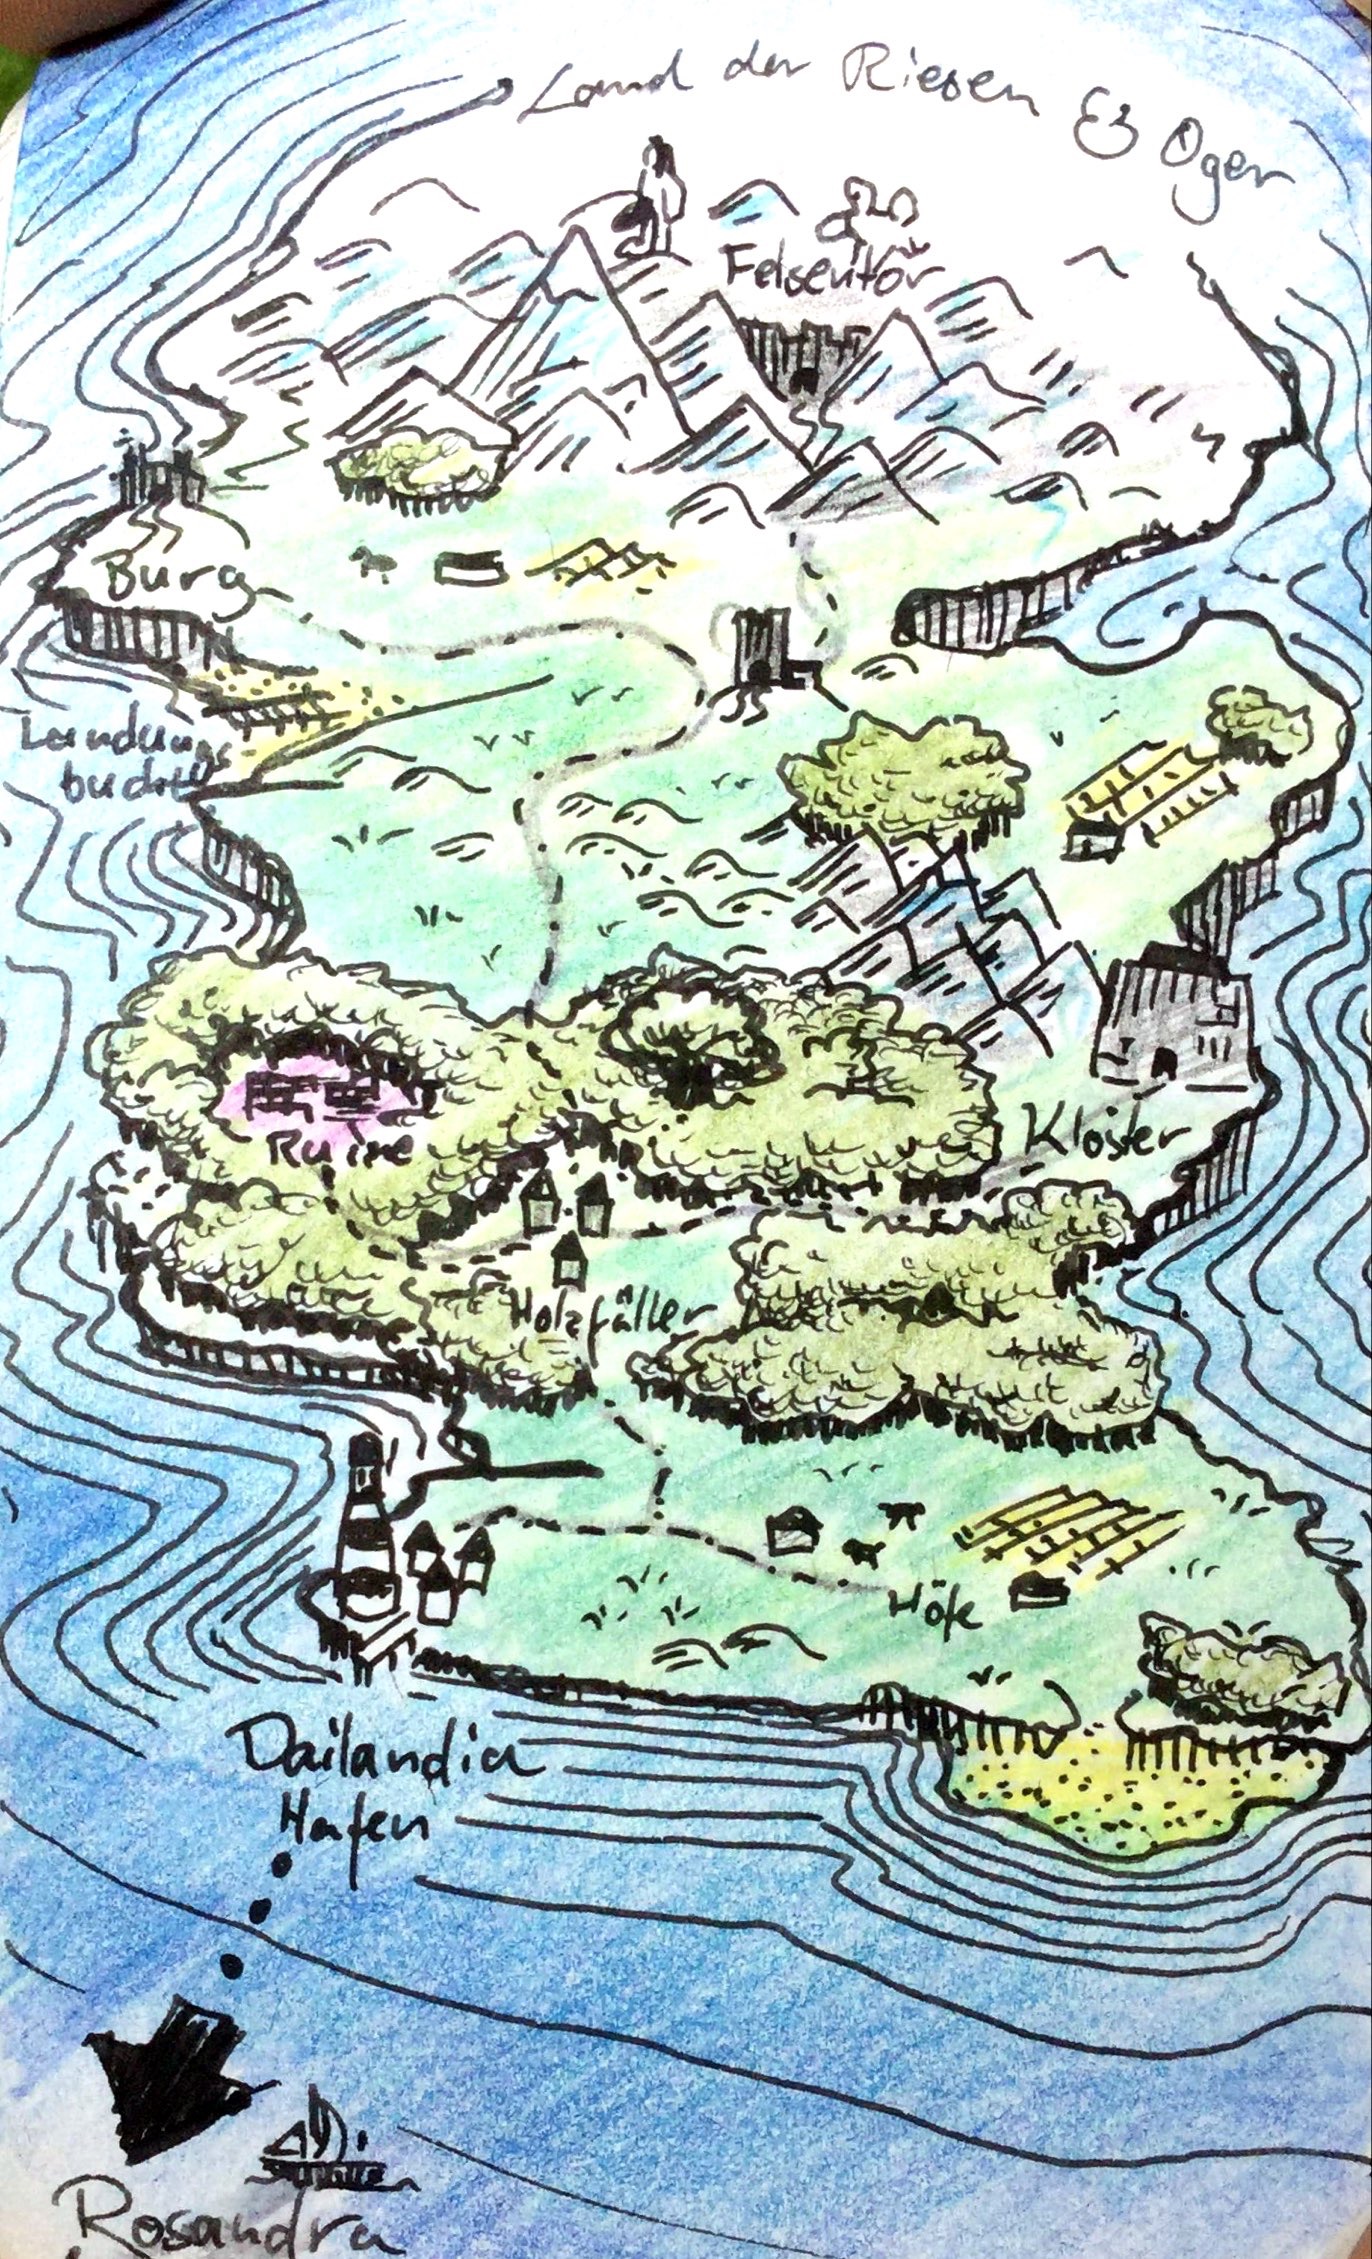 Land der Riesen & Oger
Felsentor
Burg
Landungs-
bucht
Ruine
Kloster
Holzfäller
Höfe
Dailandia
Hafen
Rosandra